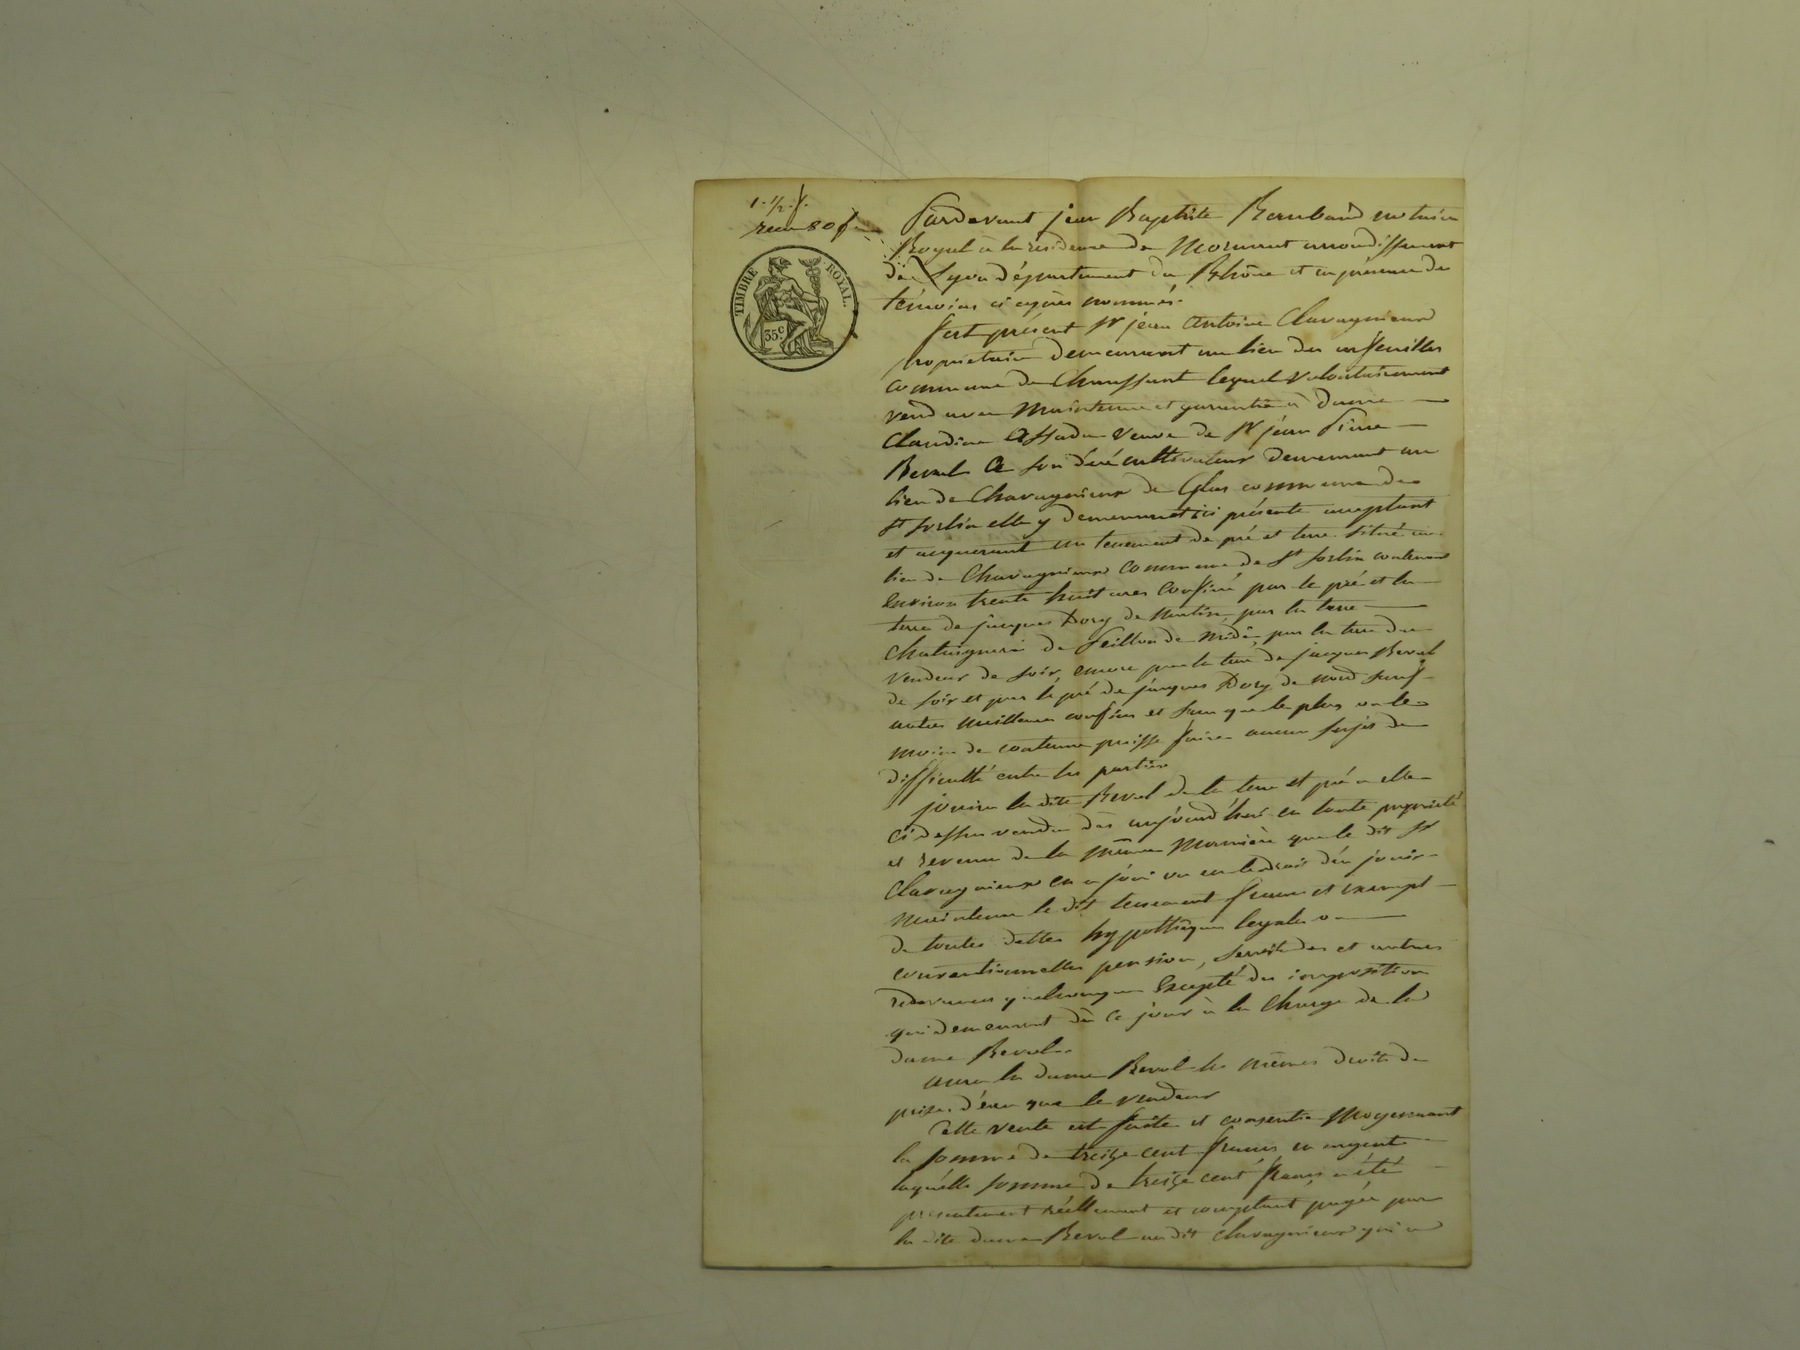 1. 1/2 f.
reçu 80 f
TIMBRE ROYAL.
35c
Pardevant jean Baptiste Rambaud notaire
Royal à la résidence de Mornant arrondissement
de Lyon département du Rhône et en présence de
témoins ci après nommés.
fut présent Sr jean Antoine Chavagnieux
propriétaire demeurant au lieu des
commune de Chaussant lequel volontairement
vend avec Maintenue et garantie à dame
Claudine veuve de Sr jean Pierre
Beval son cultivateur demeurant au
lieu de Chavagnieux de commune de
St Sorlin elle y demeurant ici présente acceptant
et acquerant un tenement de pré et terre situé au
lieu de Chavagnieux commune de St Sorlin contenant
Environ trente huit ares Confiné par le pré et la
terre de jacques Dory de Matin, par la terre
Chataigneraie de de Midi, par la terre du
vendeur de soir, encore par la terre de jacques Beval
de soir et par le pré de jacques Dory de nord sauf
autres meilleurs confins et sans que le plus ou le
moins de contenue puisse faire aucun sujet de
difficulté entre les parties
jouira la dite Beval de la terre et pré a elle
ci dessus vendu dès aujourd'hui en toute propriété
et revenu de la même Manière que le dit Sr
Chavagnieux en a joui ou en droit d'en jouir
Maintenu le dit tenement franc et exempt
de toutes dettes hypothèques légales o
conventionnelles pension, servitudes et autres
redevances quelconques Excepté des imposition
qui demeurent dès ce jour à la Charge de la
dame Beval.
aura la dame Beval les mêmes droits de
prise d'eau que le vendeur
Cette vente est faite et consentie Moyennant
la somme de treize cent francs en argent
laquelle somme de treize cent francs a été
presentement réellement et comptant payée par
la dite dame Beval au dit Chavagnieux qui a